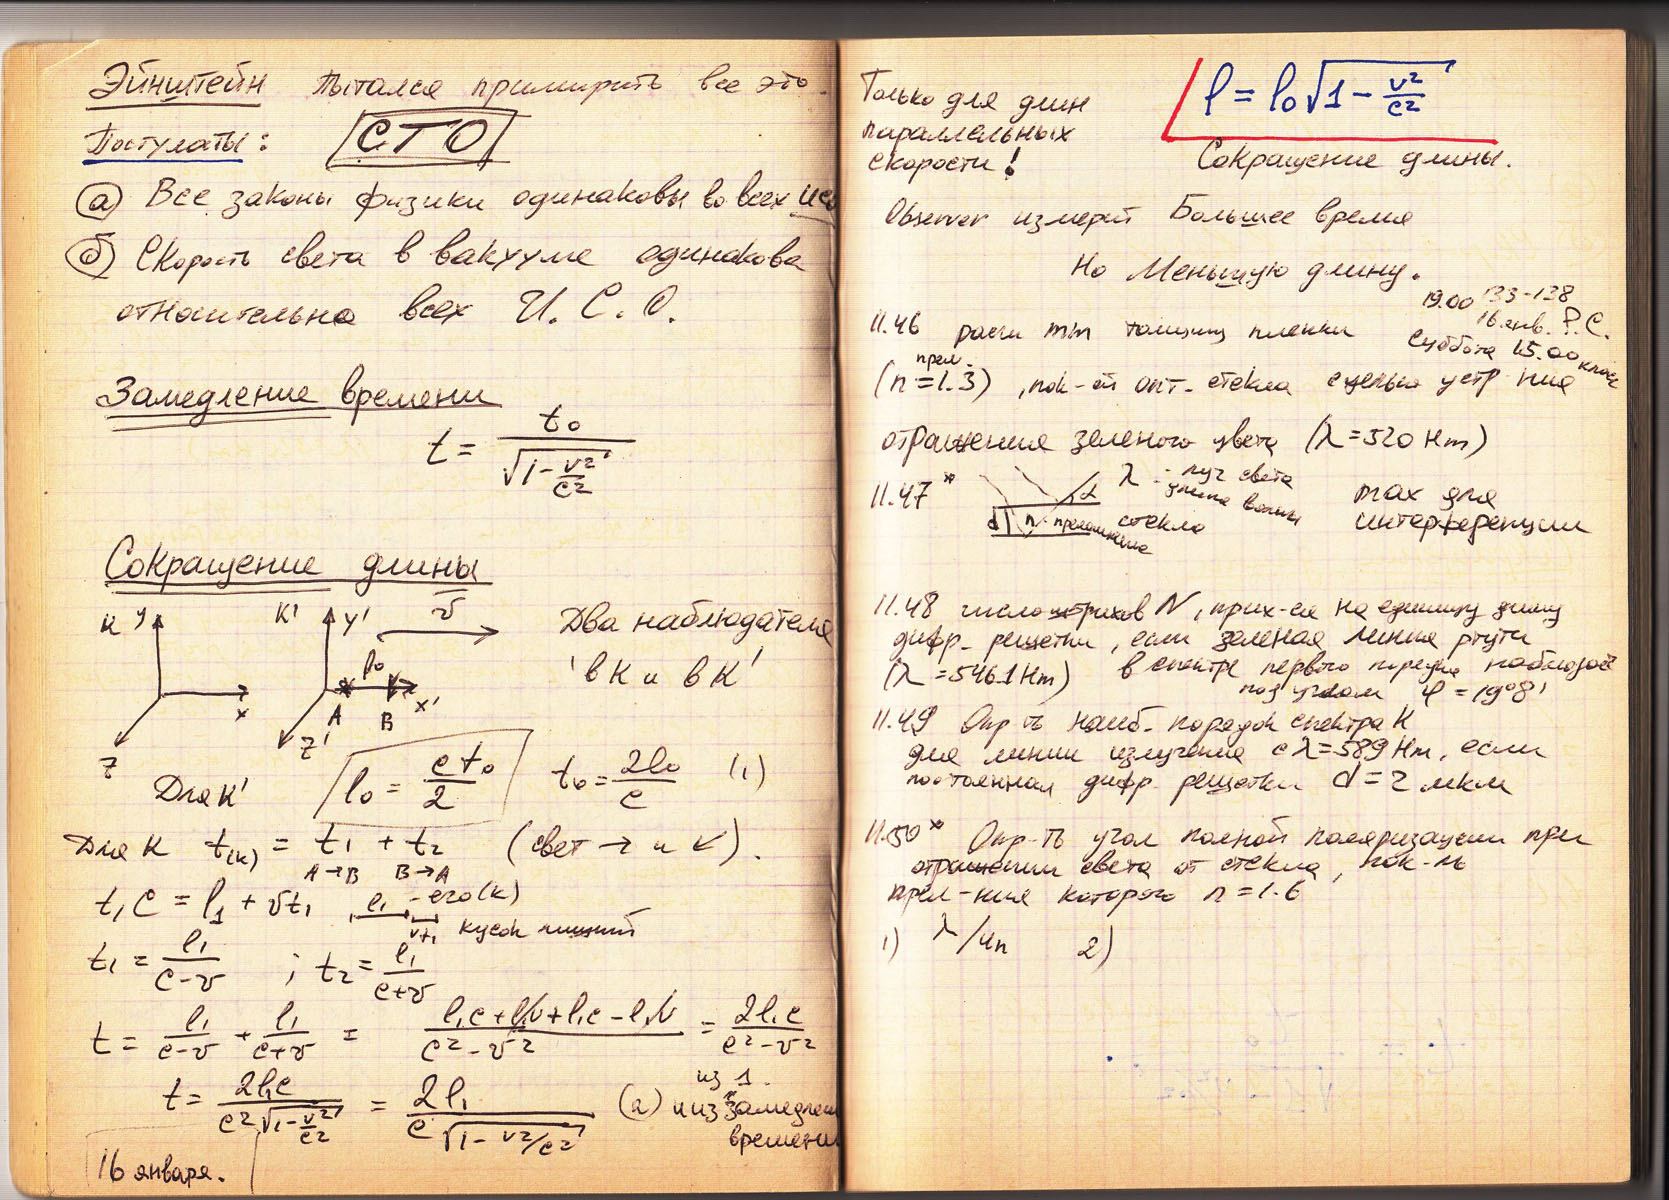 Эйнштейн Пытался примирить все это.
Постулаты: СТО
а) Все законы физики одинаковы во всех исо
б) Скорость света в вакууме одинакова
относительно всех И.С.О.
Замедление времени
t = t₀ / √(1 - v²/c²)
Сокращение длины
K y K' y' v Два наблюдателя
в K и в K'
l₀
x A B x'
z z'
Для K' l₀ = ct₀/2 t₀ = 2l₀/c (1)
Для K t(к) = t₁ + t₂ (свет → и ↙).
A→B B→A
t₁c = l₁ + vt₁ l₁ - его(к)
vt₁ кусок лишний
t₁ = l₁/(c-v) ; t₂ = l₁/(c+v)
t = l₁/(c-v) + l₁/(c+v) = (l₁c + l₁v + l₁c - l₁v)/(c² - v²) = 2l₁c/(c² - v²)
t = 2l₁c / c²√(1 - v²/c²) = 2l₁ / c√(1 - v²/c²) (2) из 1.
и из замедлен
времени
16 января.
Только для длин
параллельных
скорости!
l = l₀√(1 - v²/c²)
Сокращение длины.
Observer измерит Большее время
Но Меньшую длину.
19.00 133-138
16 янв. P.C.
суббота 15.00 класс
11.46 расч min толщину пленки
(n = 1.3) прел., пок-ой опт. стекла с целью устр-ния
отражения зеленого цвета (λ = 520 Нm)
11.47* λ - луч света
длина волны
α d n - преломление
стекло
max для
интерференции
11.48 число штрихов N, прих-ся на единицу длины
дифр. решетки, если зеленая линия ртути
(λ = 546.1 Нm) в спектре первого порядка наблюдается
под углом φ = 19°8'
11.49 Опр-ть наиб. порядок спектра K
для линии излучения с λ = 589 Нm, если
постоянная дифр решетки d = 2 мкм
11.50* Опр-ть угол полной поляризации при
отражении света от стекла, пок-ль
прел-ния которого n = 1.6
1) λ/4n 2)